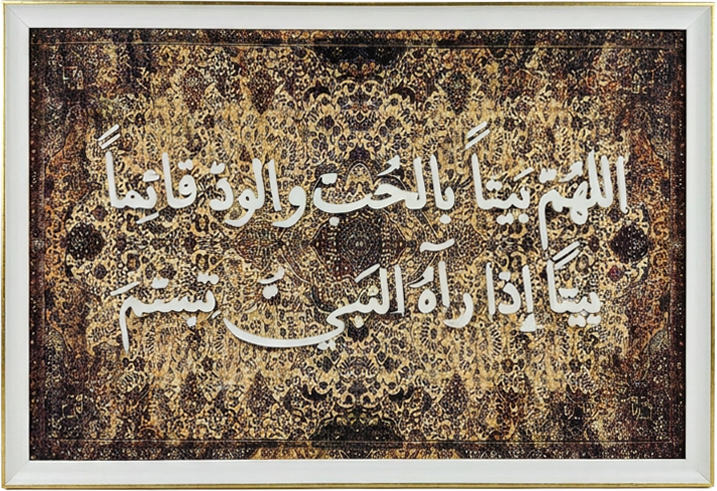 اللهُمّ بَيتاً بالحُبّ والودّ قائِماً
بيتاً إذا رآهُ النَبيُّ تبسّمَ